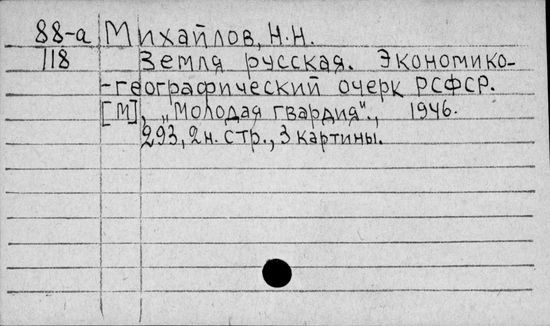 88-а Михайлов, Н.Н.
118 Земля русская. Экономико-
-географический очерк РСФСР.
[М], „Молодая гвардия"., 1946.
293, 2н. стр., 3 картины.